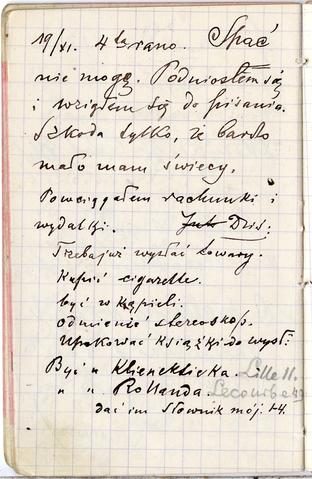 19/XI. 4ta rano. Spać
nie mogę. Podniosłem się
i wziąłem się do pisania.
Szkoda tylko, że bardzo
mało mam świecy.
Powciągałem rachunki i
wydatki. Jut Dziś:
Trzeba już wysłać towary.
Kupić cigarette.
być w kąpieli.
odmienić stereoskop.
Upakować książki do wysł.
Być u
Lille 11.
" " Rollanda.
Lecombe 49
dać im słownik mój. 1-4.